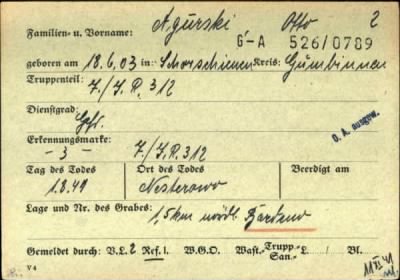 Familien- u. Vorname: Agurski Otto 2
G-A 526/0789
geboren am 18.6.03 in: Schorschienen Kreis: Gumbinnen
Truppenteil: 7./J.R. 312
Dienstgrad: Gfr.
O. A. ausgew.
Erkennungsmarke: -3- 7./J.R. 312
Tag des Todes Ort des Todes Beerdigt am
1.8.41 Nesterowo
Lage und Nr. des Grabes: 1,5 km nördl.
Gemeldet durch: V.L. 2 Ref. 1. W.G.O. Wast.- Trupp- San.- L / Bl.
V 4